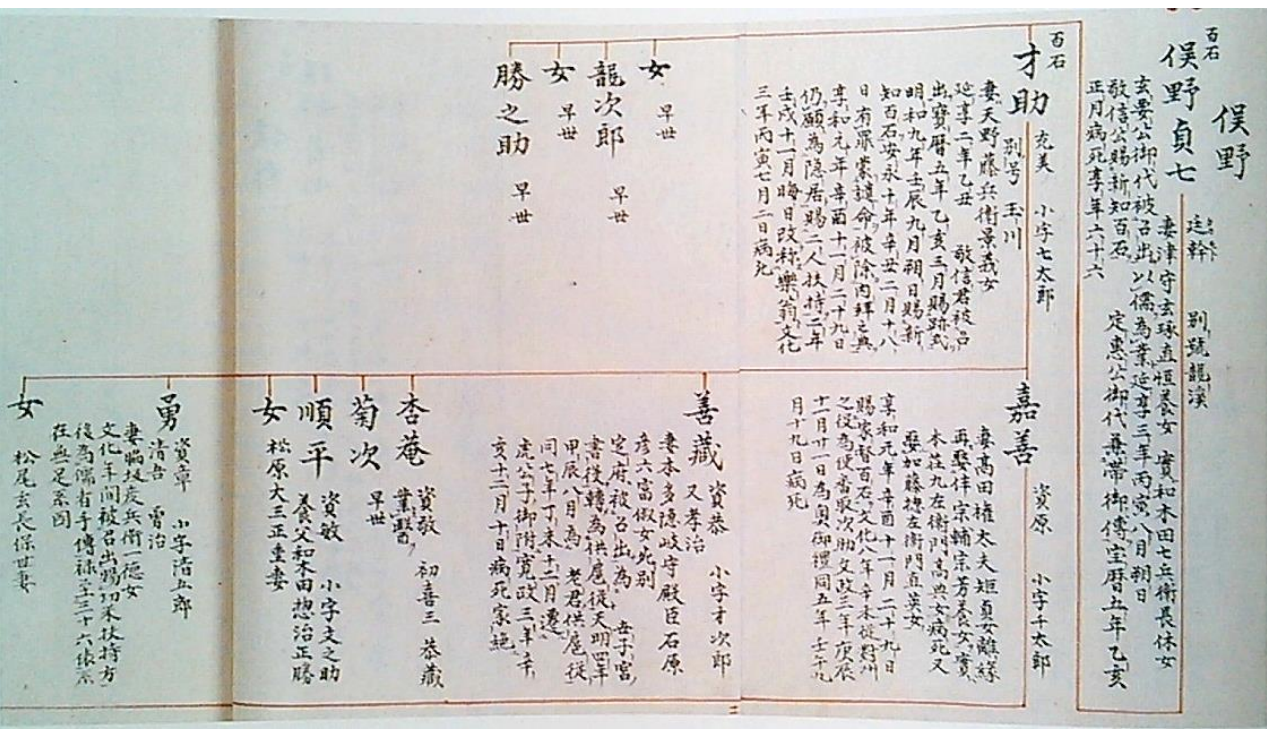 俣野
百石
俣野貞七
廷幹 別號龍渓
妻津守玄琢直恒養女 實和木田七兵衛長休女
玄要公御代被召出以儒為業延享三年丙寅八月朔日
敬信公賜新知百石 定惠公御代兼帯御傅宝暦五年乙亥
正月病死享年六十六
百石
才助
充美 小字七太郎
別号 玉川
妻天野藤兵衛景義女
延享二年乙丑 敬信君被召
出寶暦五年乙亥三月賜跡式
明和九年壬辰九月朔日賜新
知百石安永十年辛丑二月十八
日有罪蒙譴命被除内拜之典
享和元年辛酉十一月二十九日
仍願為隠居賜二人扶持二年
壬戌十一月晦日改称樂翁文化
三年丙寅七月二日病死
女 早世
龍次郎 早世
女 早世
勝之助 早世
嘉善
資原 小字千太郎
妻高田権大夫短貞女離縁
再娶伴宗輔宗芳養女實
本荘九左衛門高典女病死又
娶如藤穂左衛門直英女
享和元年辛酉十一月二十九日
賜家督百石文化八年辛未従対州
之役為使番取次助文政三年庚辰
十一月廿一日為奥御禮同五年壬午九
月十九日病死
善藏
資恭 小字才次郎
又孝治
妻本多隠岐守殿臣石原
彦六富俶女死別
定府被召出為 世子宮
書後轉為供扈従天明四年
甲辰八月為 老君供扈従
同七年丁未十二月遷
虎公子御附寛政三年辛
亥十二月十日病死家絶
杏菴
資敬 初喜三 恭蔵
業醫
菊次 早世
順平
資敏 小字文之助
養父和田惣治正勝
女 松原大三正重妻
勇
資章 小字清五郎
清吾 雷治
妻脇坂炭兵衛一徳女
文化年間被召出賜切米扶持方
後為儒者手傳禄
在無足系図
女 松尾玄長保世妻